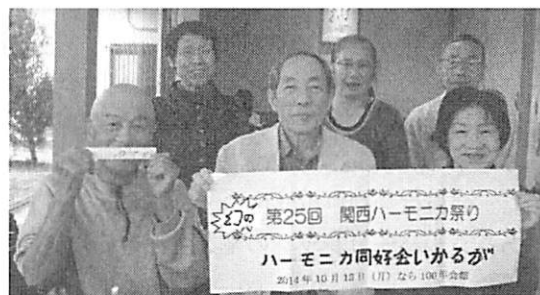 幻の 第25回 関西ハーモニカ祭り
ハーモニカ同好会いかるが
2014年10月13日(月)なら100年会館